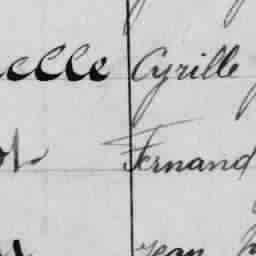 elle Cyrille
ot Fernand
Jean